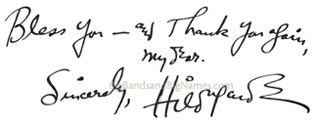 Bless you — and Thank you again,
my dear.
BigBandsandBigNames.com
Sincerely, Hildegarde